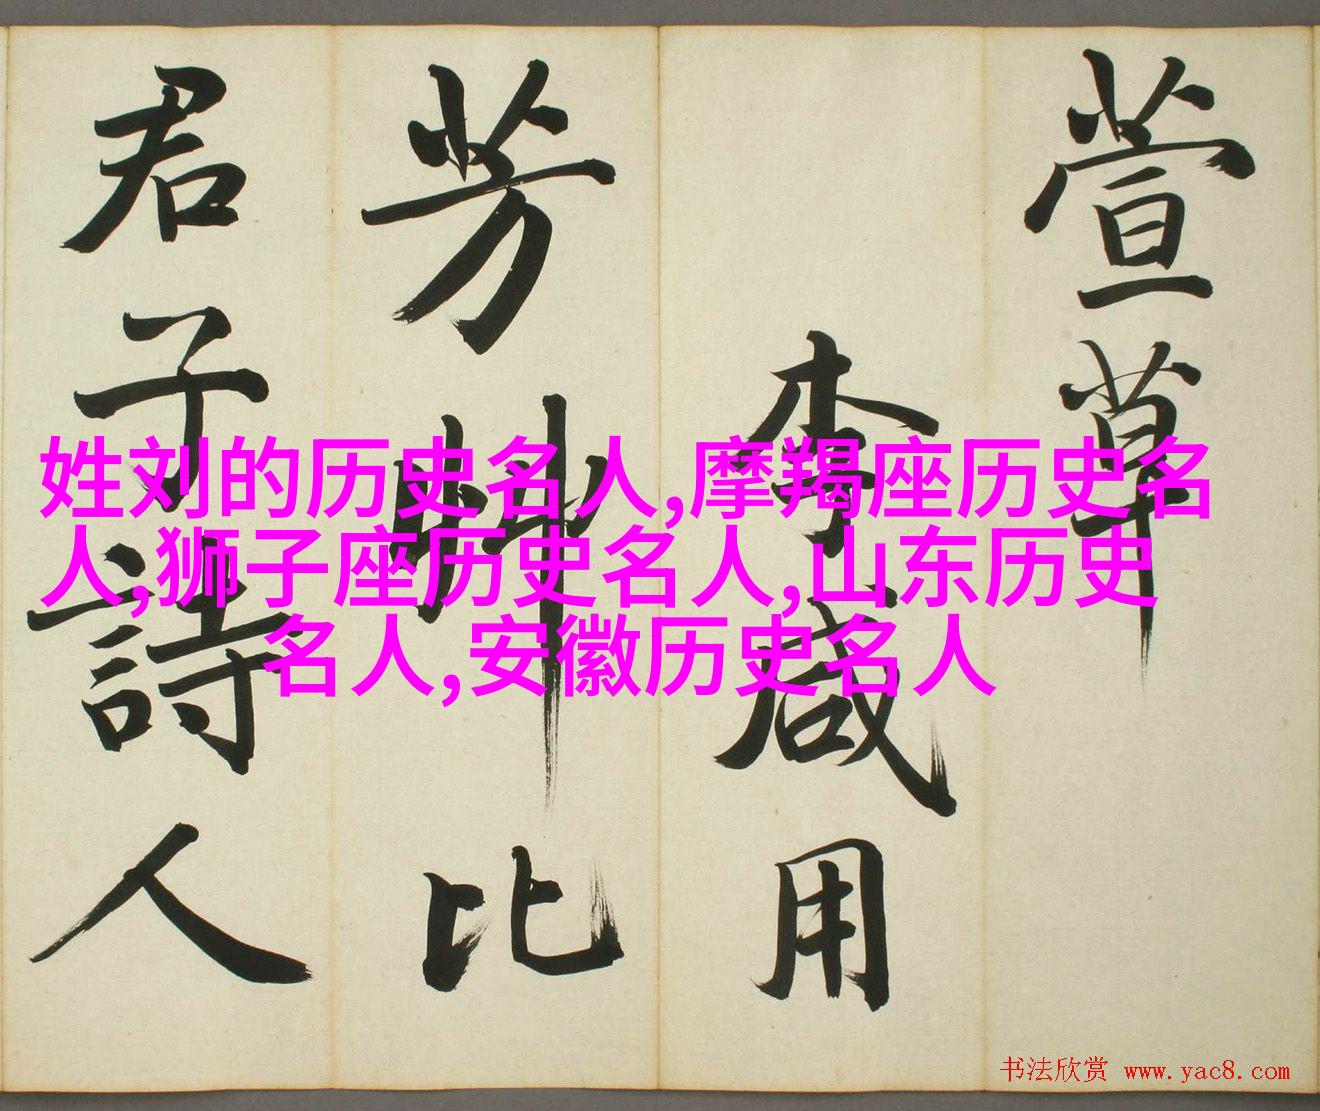 萱草
李咸用
芳艸比
君子詩人
姓刘的历史名人,摩羯座历史名
人,狮子座历史名人,山东历史
名人,安徽历史名人
书法欣赏 www.yac8.com